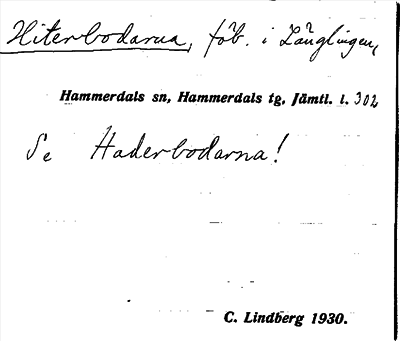 Hiterbodarna, föb. i Långlingen,
Hammerdals sn, Hammerdals tg, Jämtl. l. 302
Se Haderbodarna!
C. Lindberg 1930.